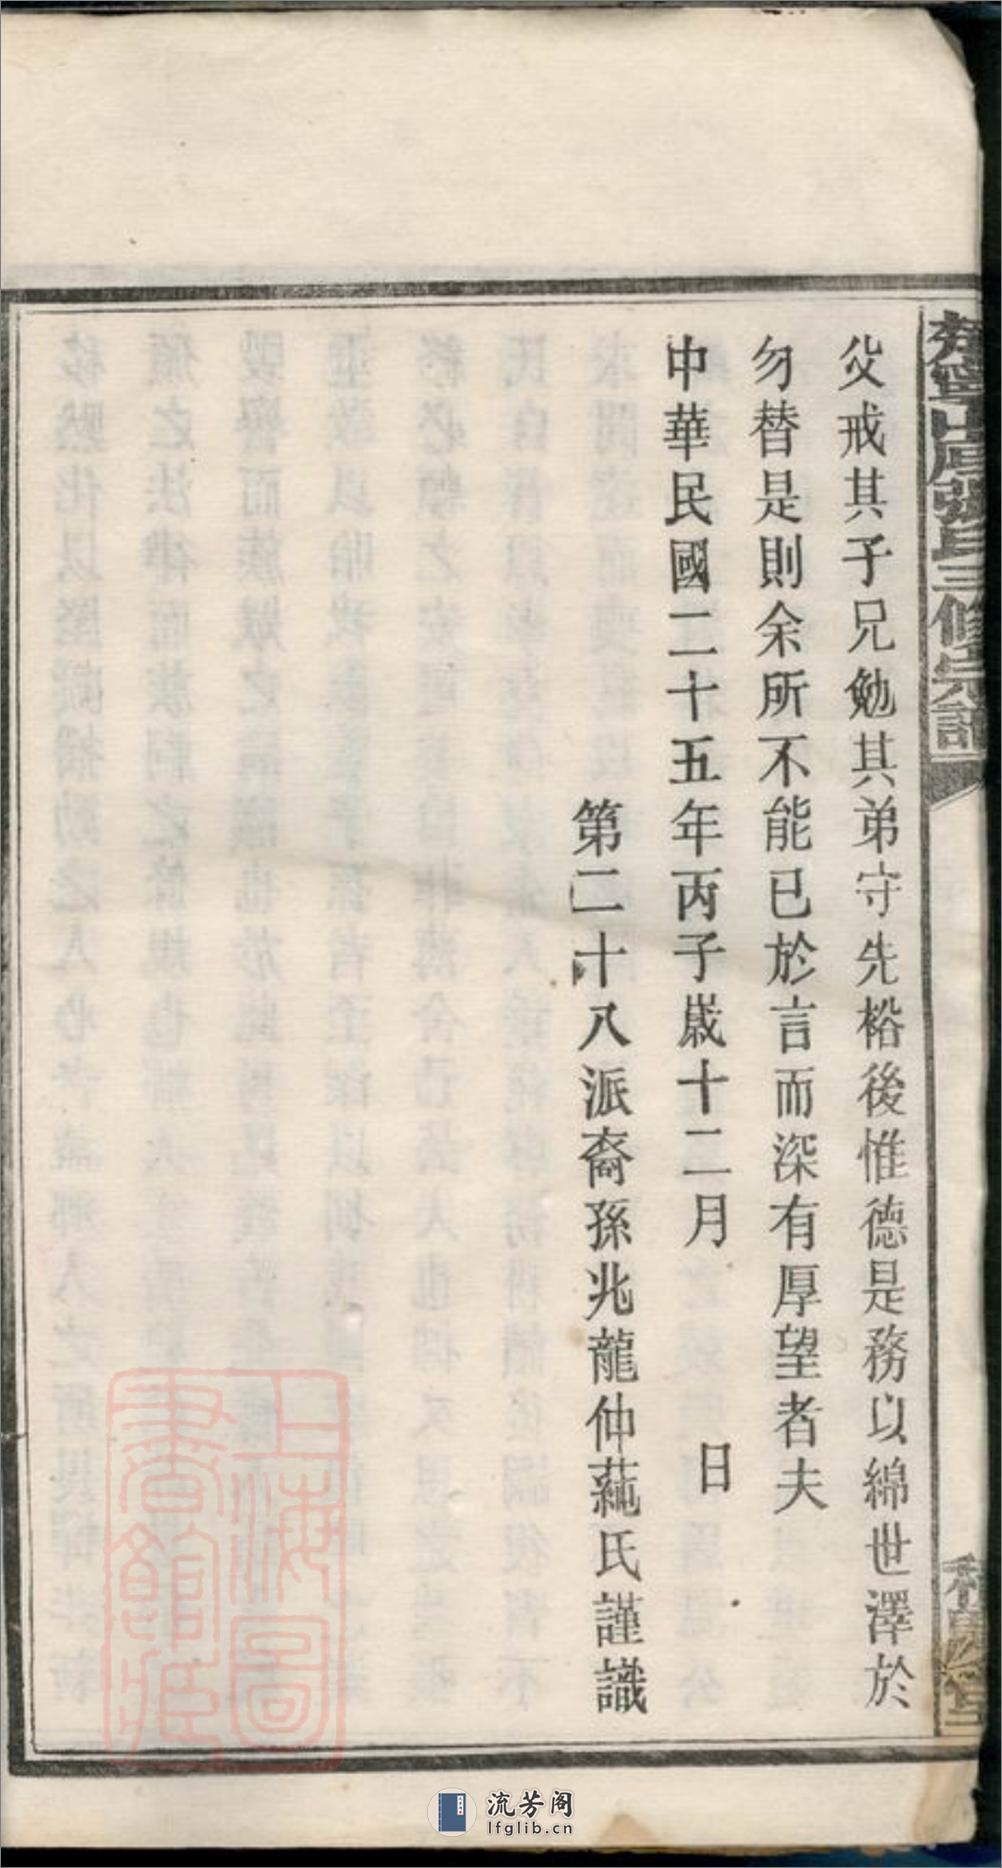 父戒其子兄勉其弟守先裕後惟德是務以綿世澤於
勿替是則余所不能已於言而深有厚望者夫
中華民國二十五年丙子歲十二月　日
第二十八派裔孫兆龍仲蒓氏謹識
張氏三修宗譜
上海圖
書館藏
流芳阁
lfglib.cn